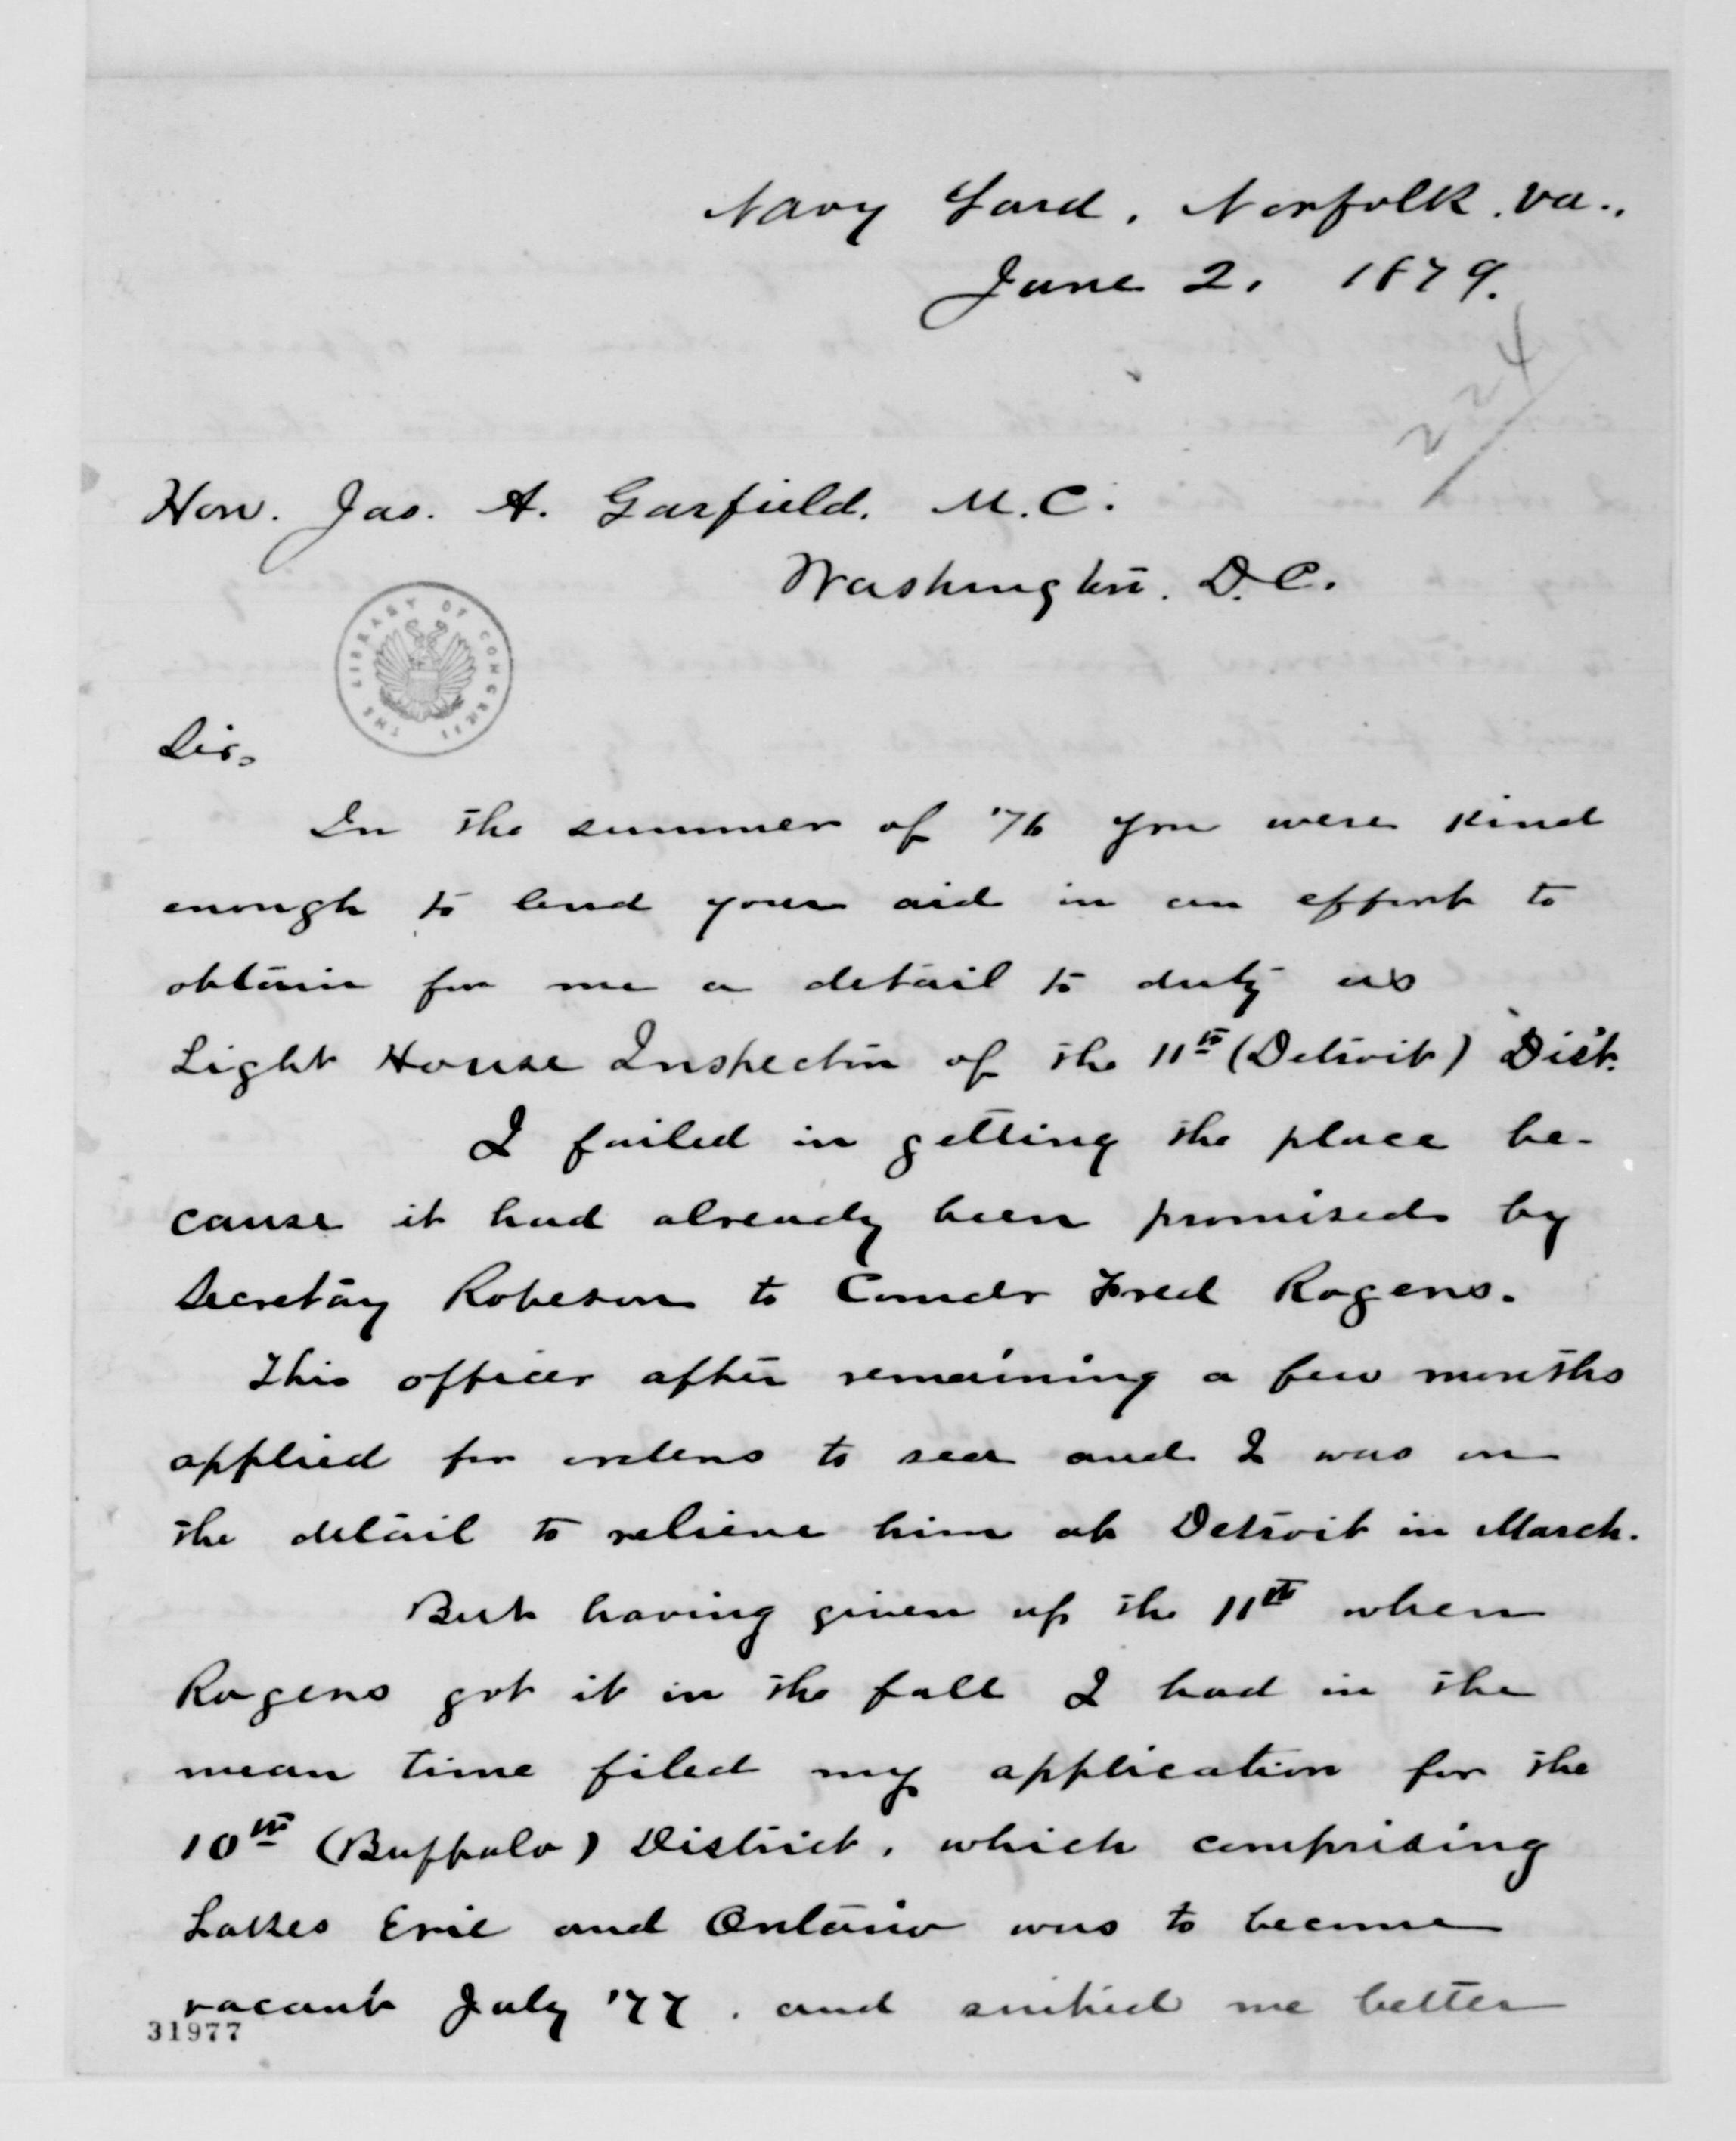 Navy Yard, Norfolk, Va.,
June 2, 1879.
224
Hon. Jas. A. Garfield, M.C.
Washington, D.C.
THE LIBRARY OF CONGRESS
Sir,
In the summer of '76 you were kind
enough to lend your aid in an effort to
obtain for me a detail to duty as
Light House Inspector of the 11th (Detroit) Dist.
I failed in getting the place be-
cause it had already been promised by
Secretary Robeson to Comdr Fred Rogers.
This officer after remaining a few months
applied for orders to sea and I was on
the detail to relieve him at Detroit in March.
But having given up the 11th when
Rogers got it in the fall I had in the
mean time filed my application for the
10th (Buffalo) District, which comprising
Lakes Erie and Ontario was to become
vacant July '77, and suited me better
31977